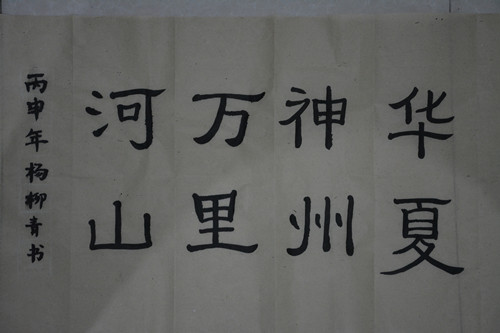 华夏
神州
万里
河山
丙申年杨柳青书